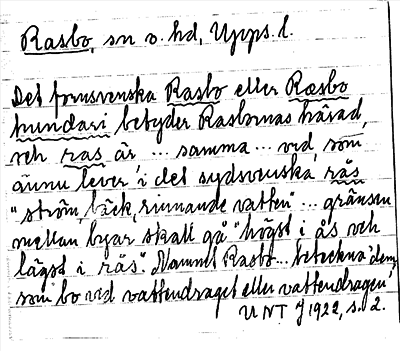 Rasbo, sn o. hd, Upps. l.
Det fornsvenska Rasbo eller Ræsbo
hundari betyder Rasbornas härad,
och ras är ... samma ... vid, som
ännu lever i det sydsvenska rås
"ström, bäck, rinnande vatten" ... gränsen
mellan byar skall gå "högst i ås och
lägst i rås". Namnet Rasbo ... beteckna "dem,
som bo vid vattendraget eller vattendragen"
UNT 1922, s. 2.